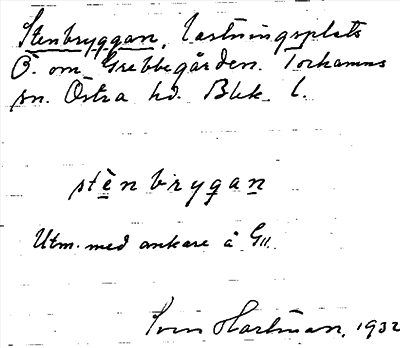 Stenbryggan, Lastningsplats
Ö. om Grebbegården. Torhamns
sn. Östra hd. Blek. l.
stènbrygan
Utm. med ankare å G11.
Sven Hartman, 1932